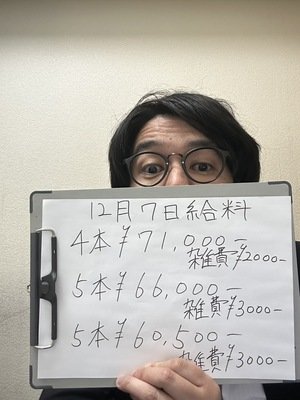 12月7日給料
4本¥71,000-
雑費¥2000-
5本¥66,000-
雑費¥3000-
5本¥60,500-
雑費¥3000-